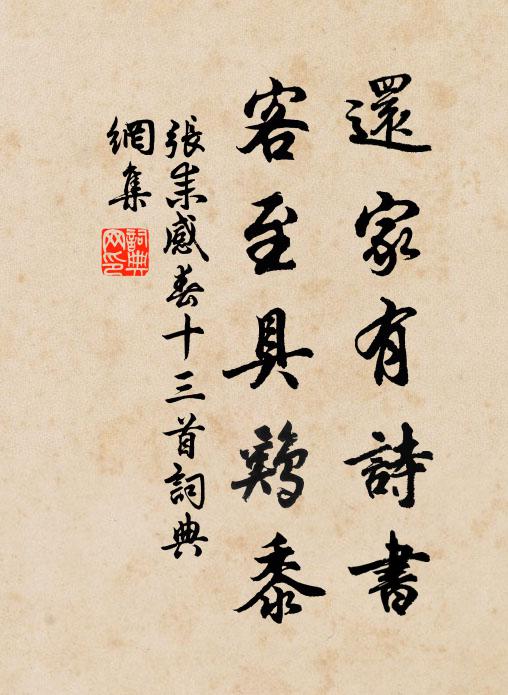 還家有詩書
客至具鷄黍
張耒感春十三首詞典
網集
詞典網印